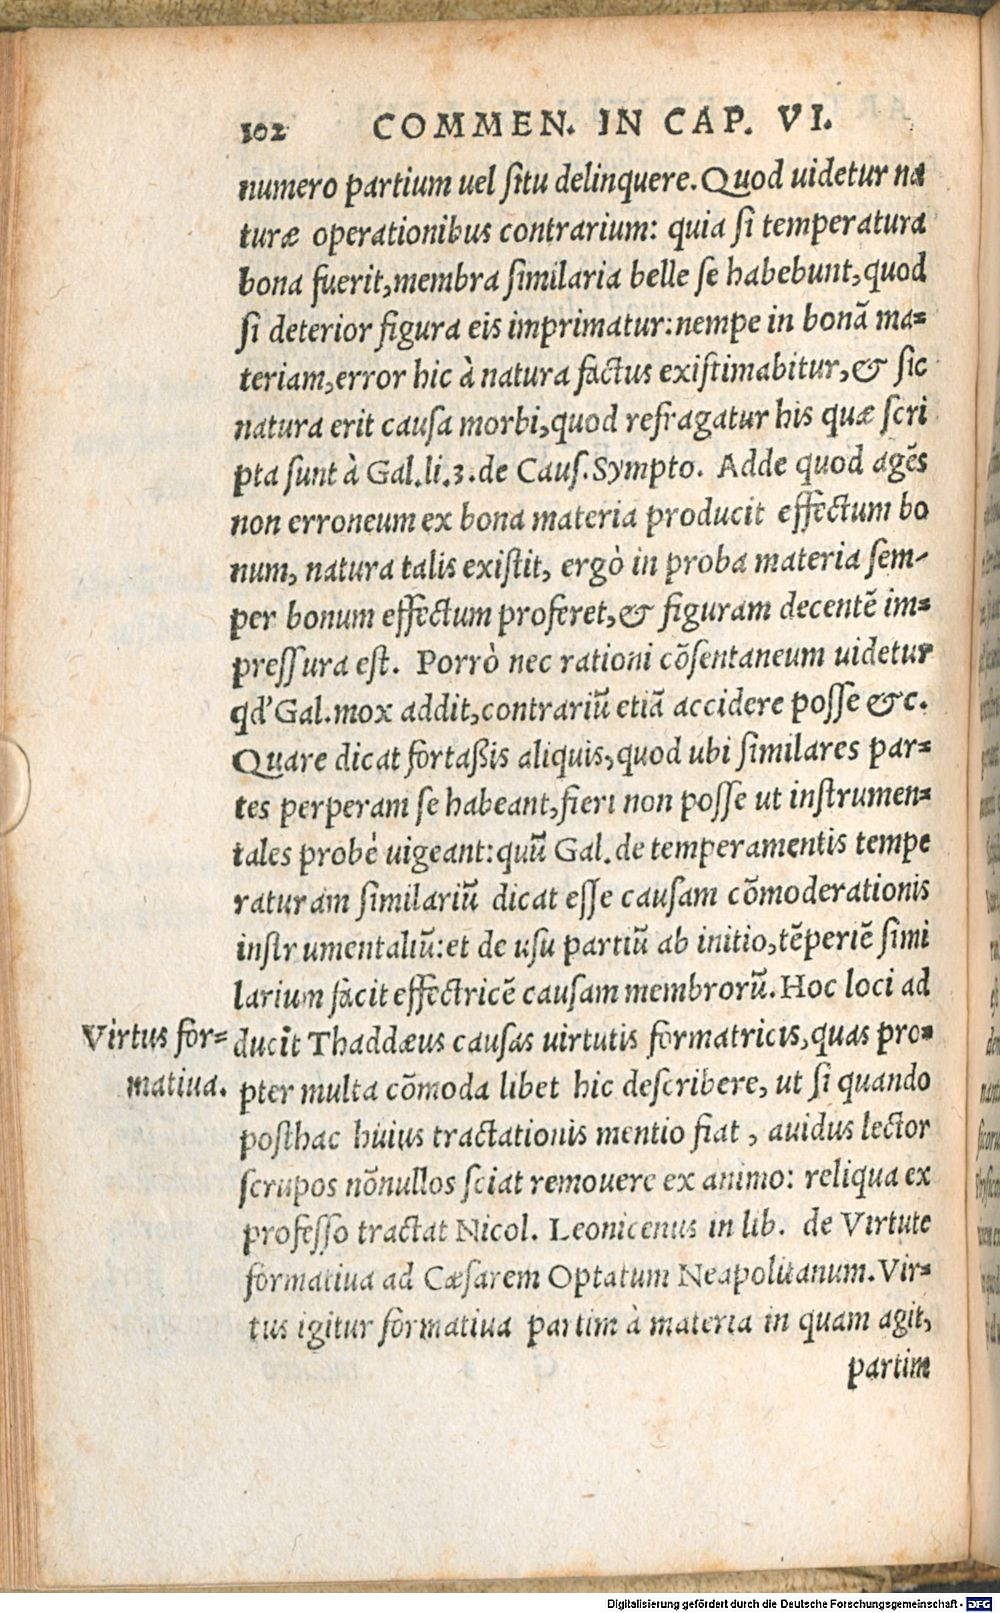 102 COMMEN. IN CAP. VI.
numero partium uel situ delinquere. Quod uidetur na
turæ operationibus contrarium: quia si temperatura
bona fuerit, membra similaria belle se habebunt, quod
si deterior figura eis imprimatur: nempe in bonā ma=
teriam, error hic à natura factus existimabitur, & sic
natura erit causa morbi, quod refragatur his quæ scri
pta sunt à Gal. li. 3. de Caus. Sympto. Adde quod agēs
non erroneum ex bona materia producit effectum bo
num, natura talis existit, ergò in proba materia sem-
per bonum effectum proferet, & figuram decentē im=
pressura est. Porrò nec rationi cōsentaneum uidetur
qd' Gal. mox addit, contrariū etiā accidere posse &c.
Quare dicat fortaßis aliquis, quod ubi similares par=
tes perperam se habeant, fieri non posse ut instrumen=
tales probè uigeant: quū Gal. de temperamentis tempe
raturam similariū dicat esse causam cōmoderationis
instrumentaliū: et de usu partiū ab initio, tēperiē simi
larium facit effectricē causam membrorū. Hoc loci ad
Virtus for= ducit Thaddæus causas uirtutis formatricis, quas pro=
matiua. pter multa cōmoda libet hic describere, ut si quando
posthac huius tractationis mentio fiat, auidus lector
scrupos nōnullos sciat remouere ex animo: reliqua ex
professo tractat Nicol. Leonicenus in lib. de Virtute
formatiua ad Cæsarem Optatum Neapolitanum. Vir=
tus igitur formatiua partim à materia in quam agit,
partim
Digitalisierung gefördert durch die Deutsche Forschungsgemeinschaft - DFG